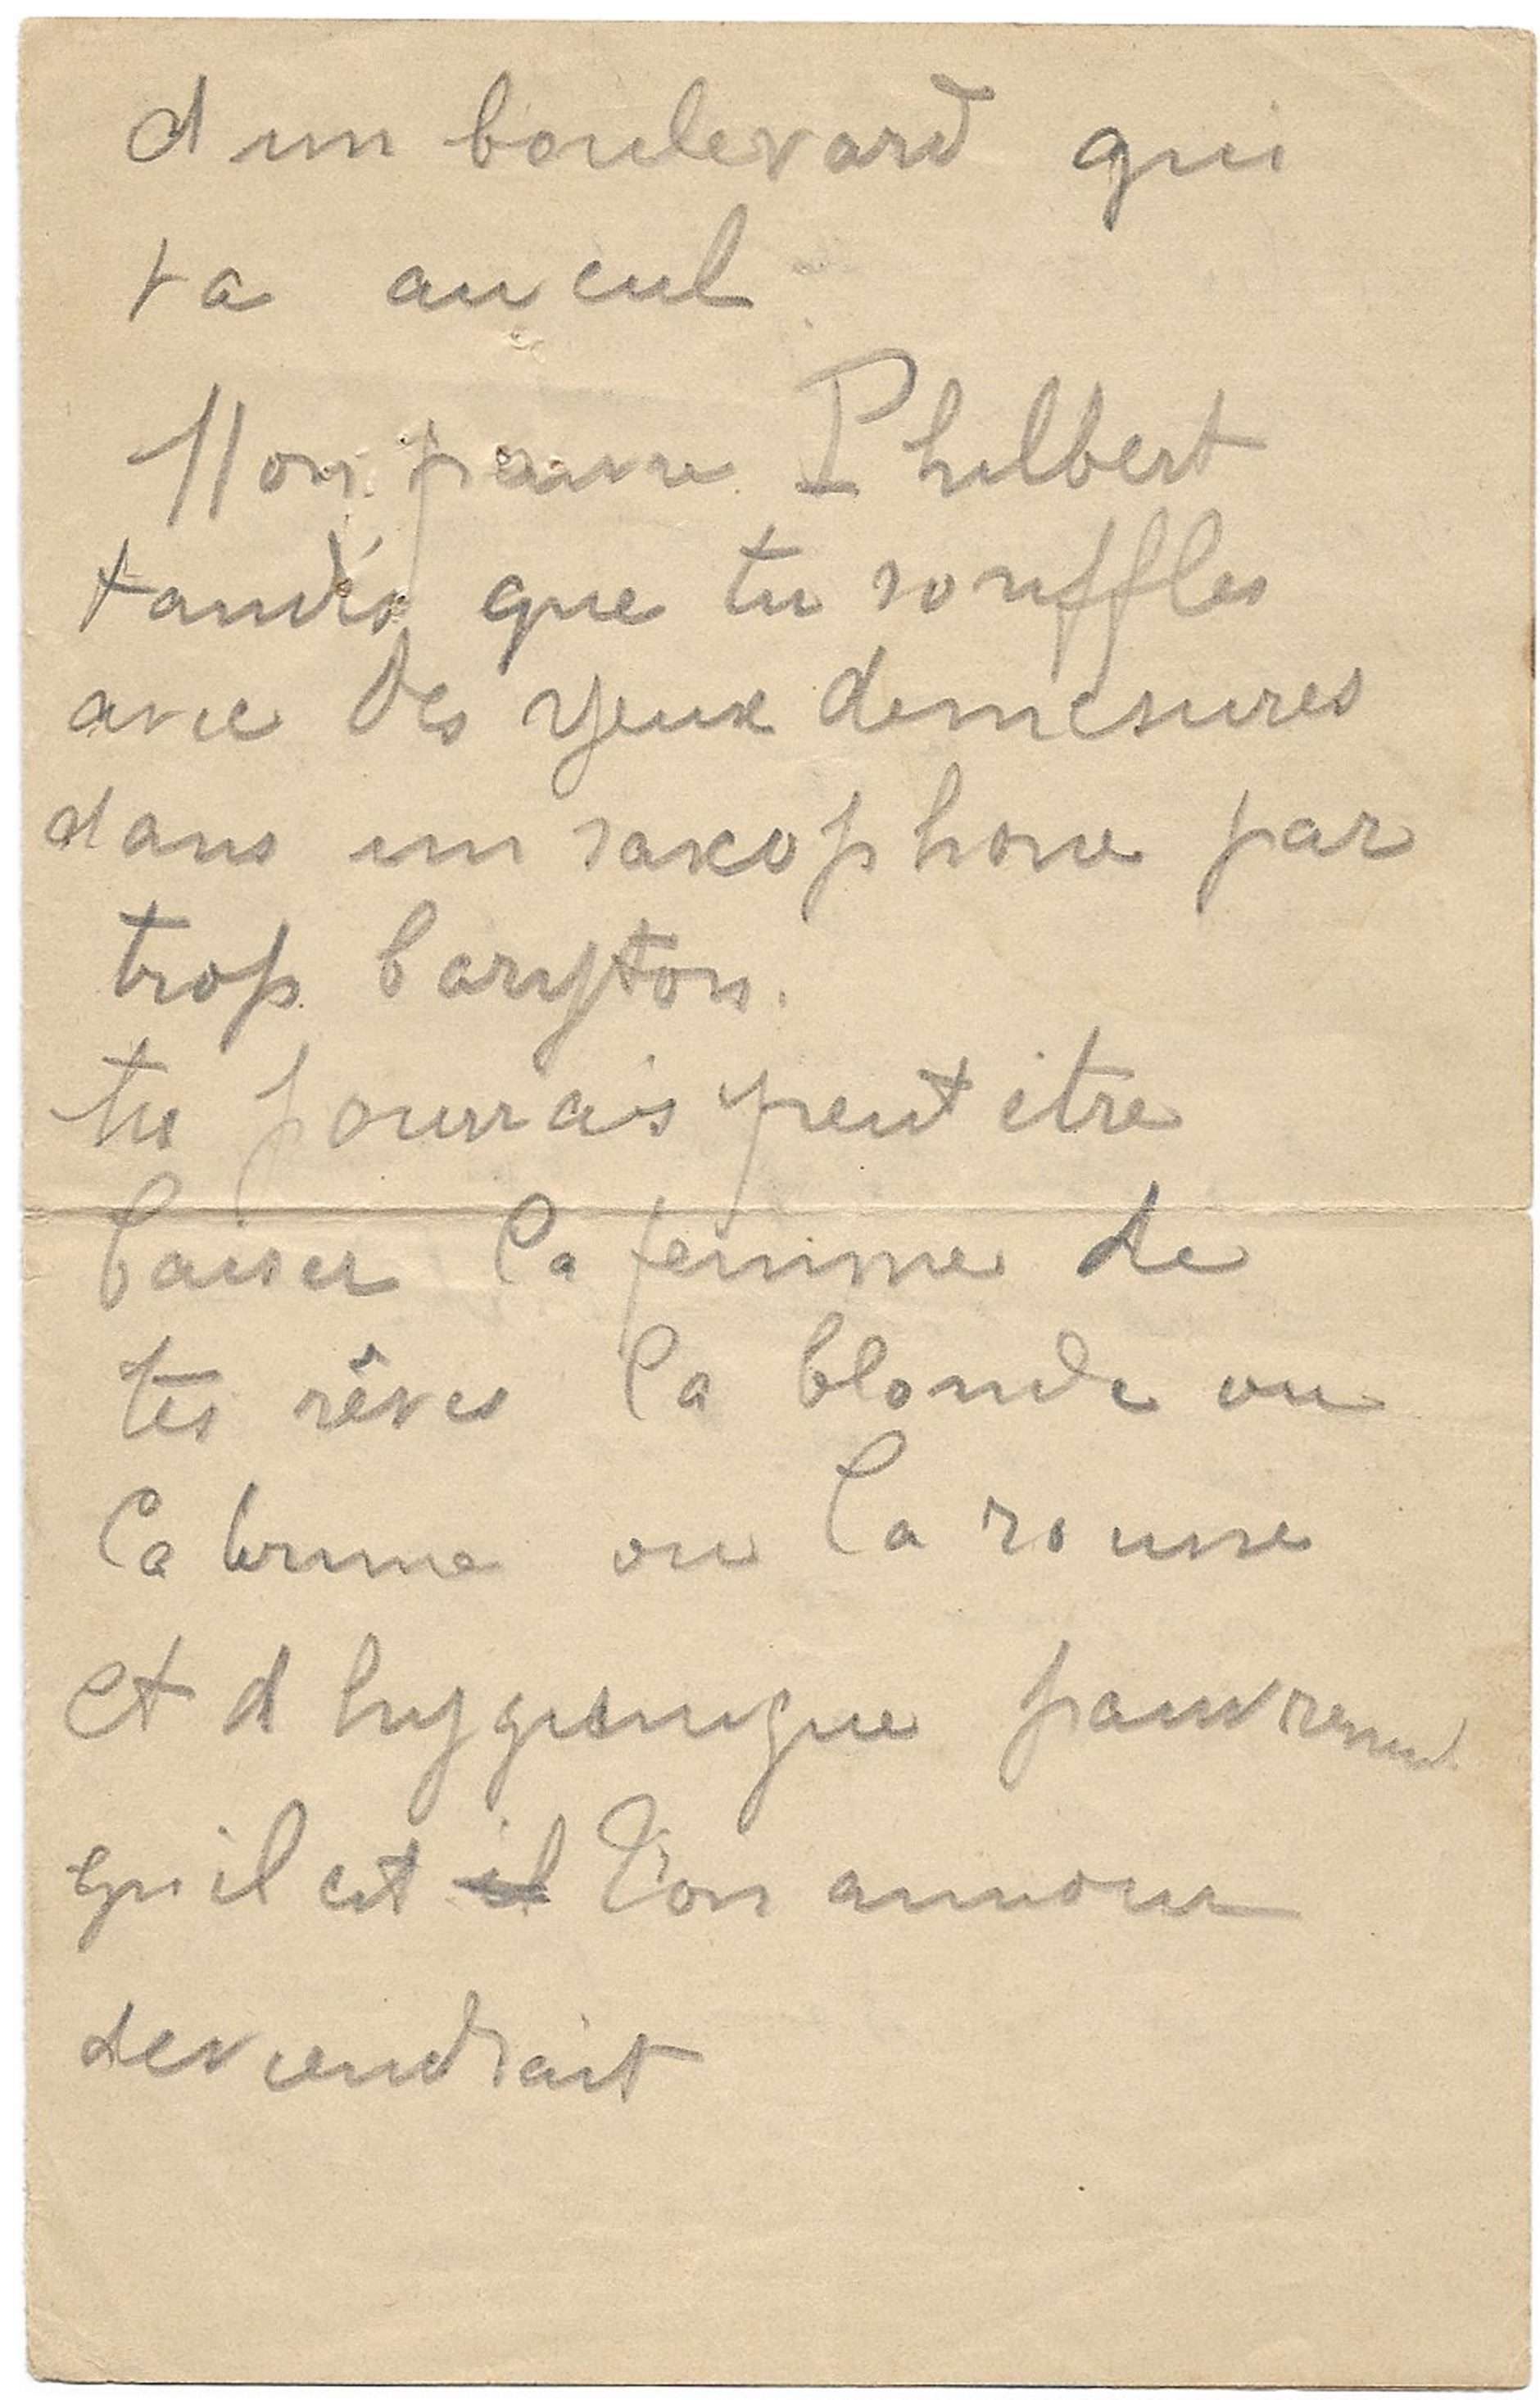 d un boulevard qui
va au cul
Mon pauvre Philbert
tandis que tu souffles
avec des yeux demesures
dans un saxophone par
trop baryton.
tu pourrais peut etre
baiser la femme de
tes rêves la blonde ou
la brune ou la rousse
et d hygienique pauvrement
qu il est il Ton amour
deviendrait